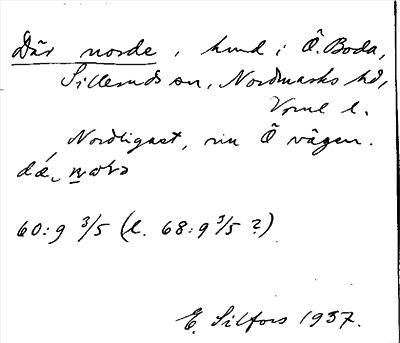 Där norde, hmd i Ö. Boda,
Silleruds sn, Nordmarks hd,
Vrml l.
Nordligast, vid Ö vägen.
dǽ,
60:9 3/5 (l. 68:9 3/5 ?)
E. Silfors 1937.